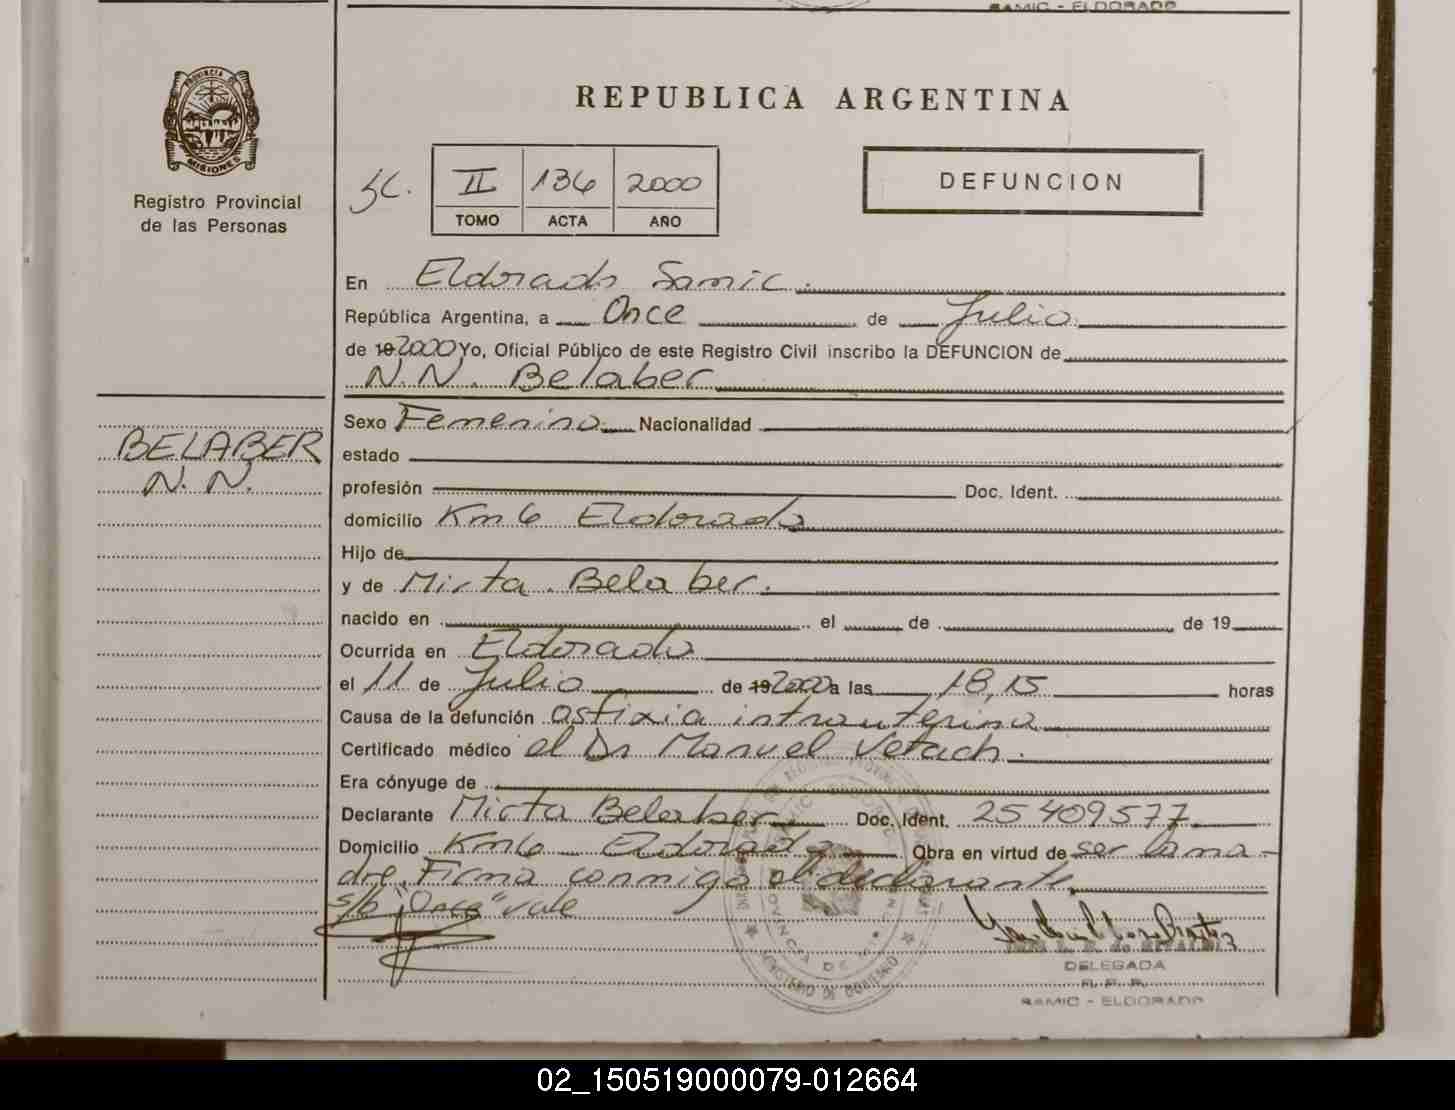 SAMIC - ELDORADO
PROVINCIA DE
MISIONES
Registro Provincial
de las Personas
REPUBLICA ARGENTINA
II 136 2000
TOMO ACTA AÑO
DEFUNCION
En Eldorado Samic
República Argentina, a Once de Julio
de 19 2000 Yo, Oficial Público de este Registro Civil inscribo la DEFUNCION de
N.N. Belaber
Sexo Femenino Nacionalidad
BELABER
N. N.
estado
profesión Doc. Ident.
domicilio Km 6 Eldorado
Hijo de
y de Mirta Belaber.
nacido en el de de 19
Ocurrida en Eldorado
el 11 de Julio de 19 2000 a las 18,15 horas
Causa de la defunción asfixia intrauterina
Certificado médico el Dr Manuel
Era cónyuge de
Declarante Mirta Belaber Doc. Ident. 25409577
Domicilio Km 6 Eldorado Obra en virtud de ser la ma-
dre. Firma conmigo el declarante
s/b "Once" vale
DELEGADA
R. P. P.
SAMIC - ELDORADO
02_150519000079-012664